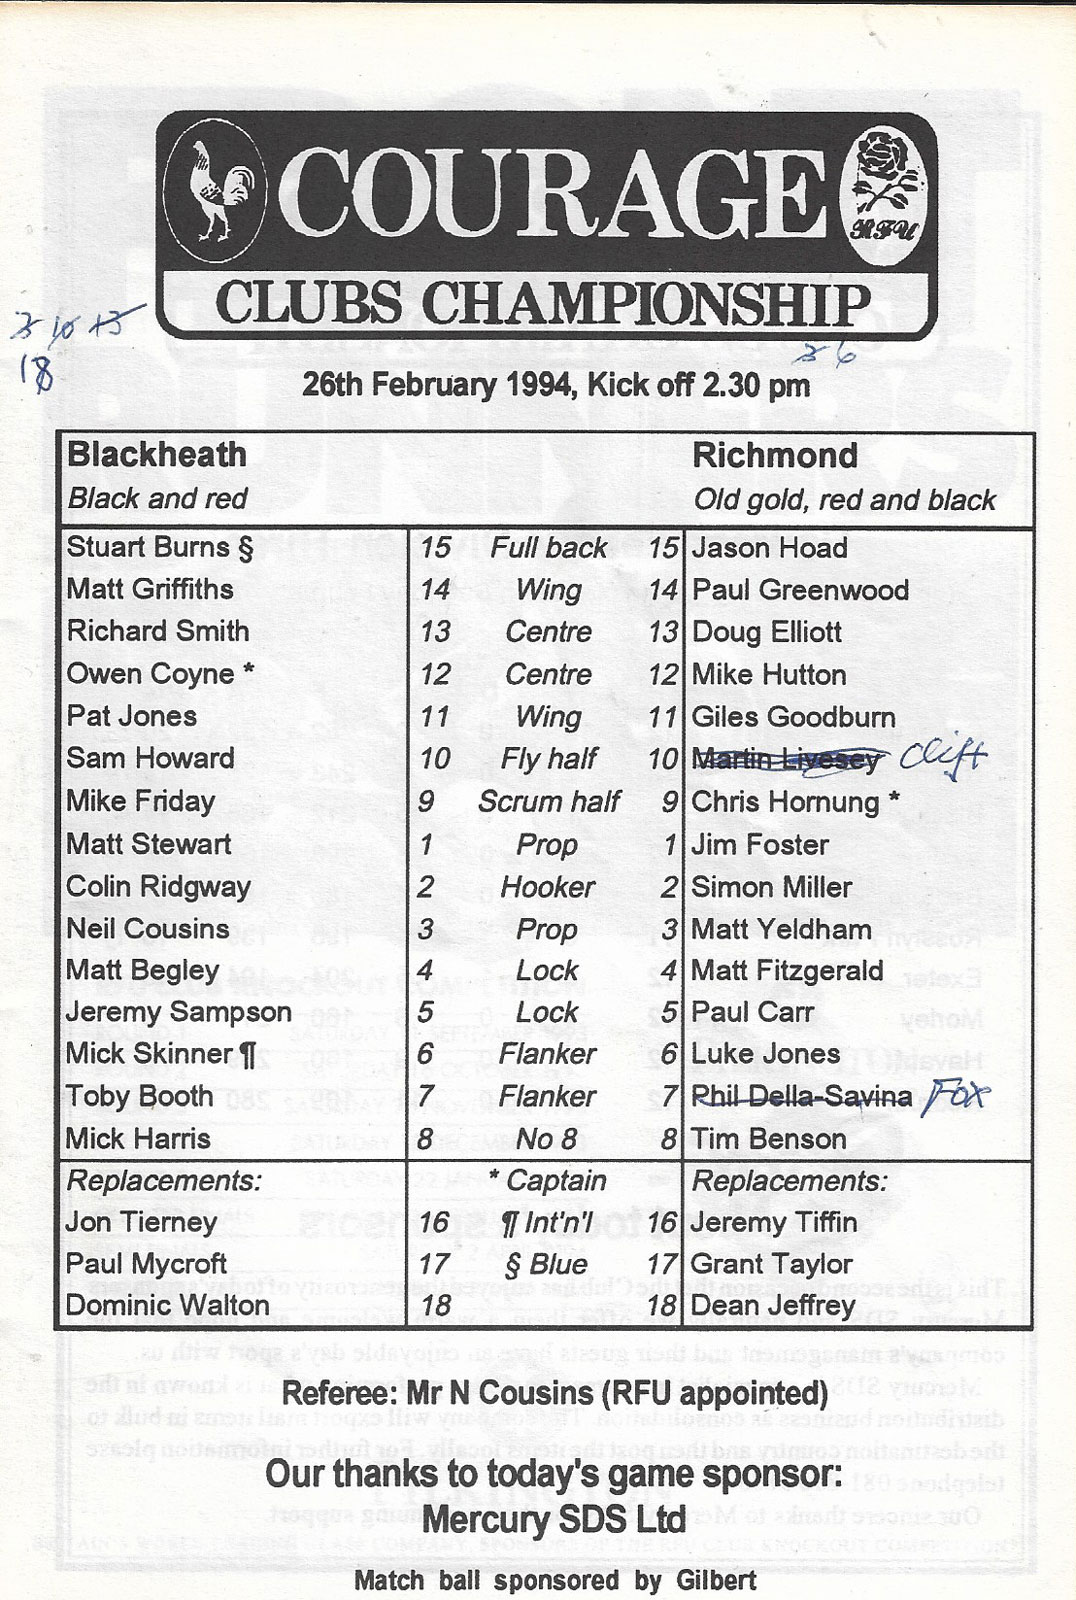 COURAGE
RFU
CLUBS CHAMPIONSHIP
3 10 13
18
3 6
26th February 1994, Kick off 2.30 pm
Blackheath Richmond
Black and red Old gold, red and black
Stuart Burns § 15 Full back 15 Jason Hoad
Matt Griffiths 14 Wing 14 Paul Greenwood
Richard Smith 13 Centre 13 Doug Elliott
Owen Coyne * 12 Centre 12 Mike Hutton
Pat Jones 11 Wing 11 Giles Goodburn
Sam Howard 10 Fly half 10 Martin Livesey Clift
Mike Friday 9 Scrum half 9 Chris Hornung *
Matt Stewart 1 Prop 1 Jim Foster
Colin Ridgway 2 Hooker 2 Simon Miller
Neil Cousins 3 Prop 3 Matt Yeldham
Matt Begley 4 Lock 4 Matt Fitzgerald
Jeremy Sampson 5 Lock 5 Paul Carr
Mick Skinner ¶ 6 Flanker 6 Luke Jones
Toby Booth 7 Flanker 7 Phil Della-Savina Fox
Mick Harris 8 No 8 8 Tim Benson
Replacements: * Captain Replacements:
Jon Tierney 16 ¶ Int'n'l 16 Jeremy Tiffin
Paul Mycroft 17 § Blue 17 Grant Taylor
Dominic Walton 18 18 Dean Jeffrey
Referee: Mr N Cousins (RFU appointed)
Our thanks to today's game sponsor:
Mercury SDS Ltd
Match ball sponsored by Gilbert